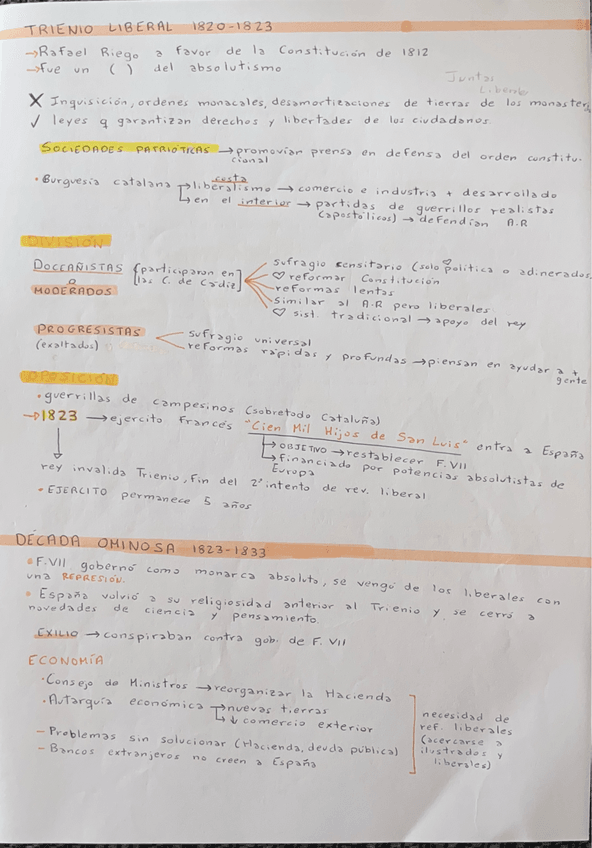 TRIENIO LIBERAL 1820-1823
→Rafael Riego a favor de la Constitución de 1812
→fue un ( ) del absolutismo
Juntas
Liberales
X Inquisición, ordenes monacales, desamortizaciones de tierras de los monaster
✓ leyes q garantizan derechos y libertades de los ciudadanos.
SOCIEDADES PATRIÓTICAS → promovían prensa en defensa del orden constitu-
cional
costa
· Burguesía catalana → liberalismo → comercio e industria + desarrollado
→ en el interior → partidas de guerrillos realistas
(apostólicos) → defendían A.R
DIVISIÓN
DOCEAÑISTAS o MODERADOS [participaron en las C. de Cádiz]
sufragio censitario (solo ♡ política o adinerados)
♡ reformar Constitución
reformas lentas
similar al A.R pero liberales
♡ sist. tradicional → apoyo del rey
PROGRESISTAS
(exaltados)
sufragio universal
reformas rápidas y profundas → piensan en ayudar a +
gente
OPOSICIÓN
· guerrillas de campesinos (sobretodo Cataluña)
→1823 → ejercito Francés "Cien Mil Hijos de San Luis" entra a España
→ OBJETIVO → restablecer F.VII
→ financiado por potencias absolutistas de
Europa
rey invalida Trienio, fin del 2º intento de rev. liberal
· EJERCITO permanece 5 años
DÉCADA OMINOSA 1823-1833
· F.VII gobernó como monarca absoluto, se vengó de los liberales con
una REPRESIÓN.
· España volvió a su religiosidad anterior al Trienio y se cerró a
novedades de ciencia y pensamiento.
EXILIO → conspiraban contra gob. de F. VII
ECONOMÍA
· Consejo de Ministros → reorganizar la Hacienda
· Autarquía económica → nuevas tierras
→ ↓ comercio exterior
- Problemas sin solucionar (Hacienda, deuda pública)
- Bancos extranjeros no creen a España
necesidad de
ref. liberales
(acercarse a
ilustrados y
liberales)